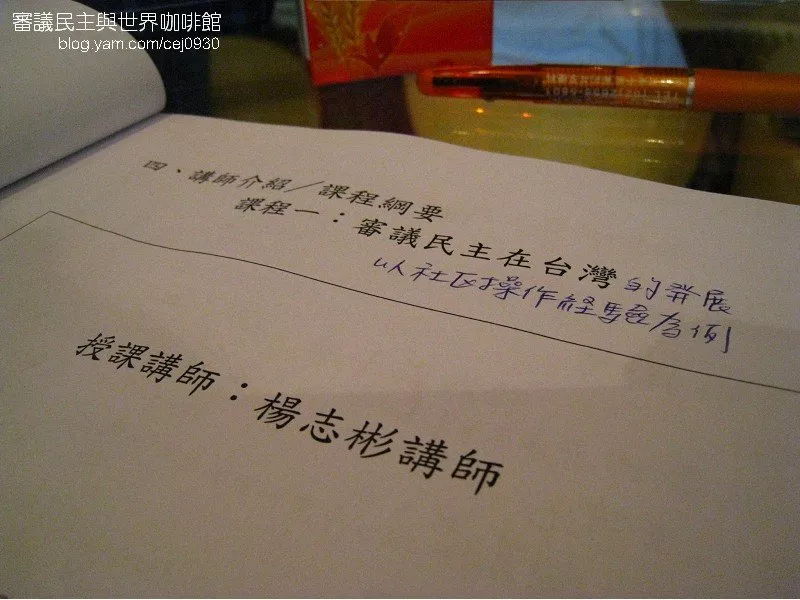 審議民主與世界咖啡館
blog.yam.com/cej0930
四、講師介紹／課程綱要
課程一：審議民主在台灣的發展
以社区操作経驗為例
授課講師：楊志彬講師